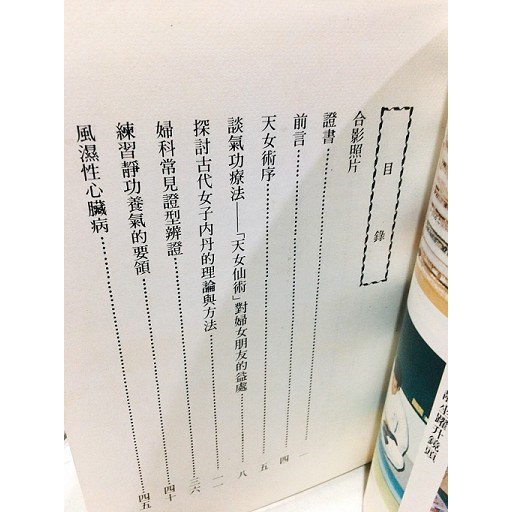 目錄
合影照片
證書……一
前言……四
天女術序……五
談氣功療法——「天女仙術」對婦女朋友的益處……八
探討古代女子內丹的理論與方法……一一
婦科常見證型辨證……三六
練習靜功養氣的要領……四十
風濕性心臟病……四五
生躍升鏡頭